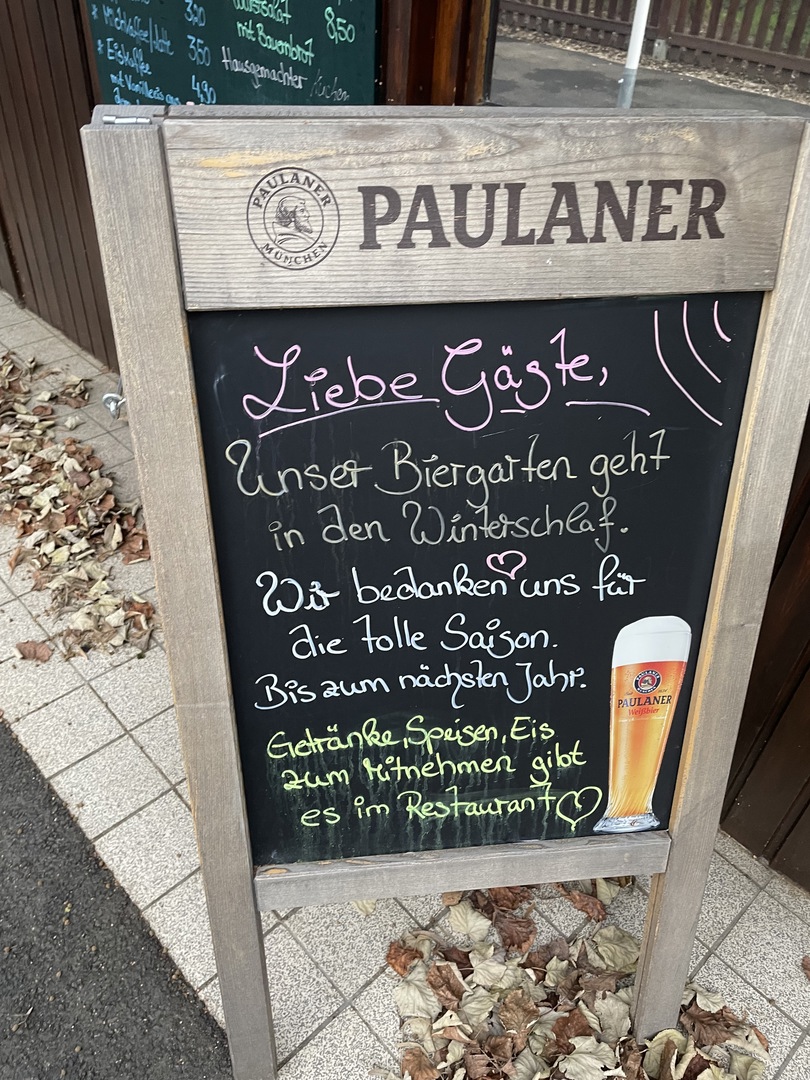 * Milchkaffee/Latte 3,50
* Eiskaffee
mit Vanilleeis 4,90
Wurstsalat
mit Bauernbrot 8,50
Hausgemachter Kuchen
PAULANER
MÜNCHEN
PAULANER
Liebe Gäste,
Unser Biergarten geht
in den Winterschlaf.
Wir bedanken uns für
die tolle Saison.
Bis zum nächsten Jahr.
Getränke, Speisen, Eis
zum Mitnehmen gibt
es im Restaurant
PAULANER
Weißbier